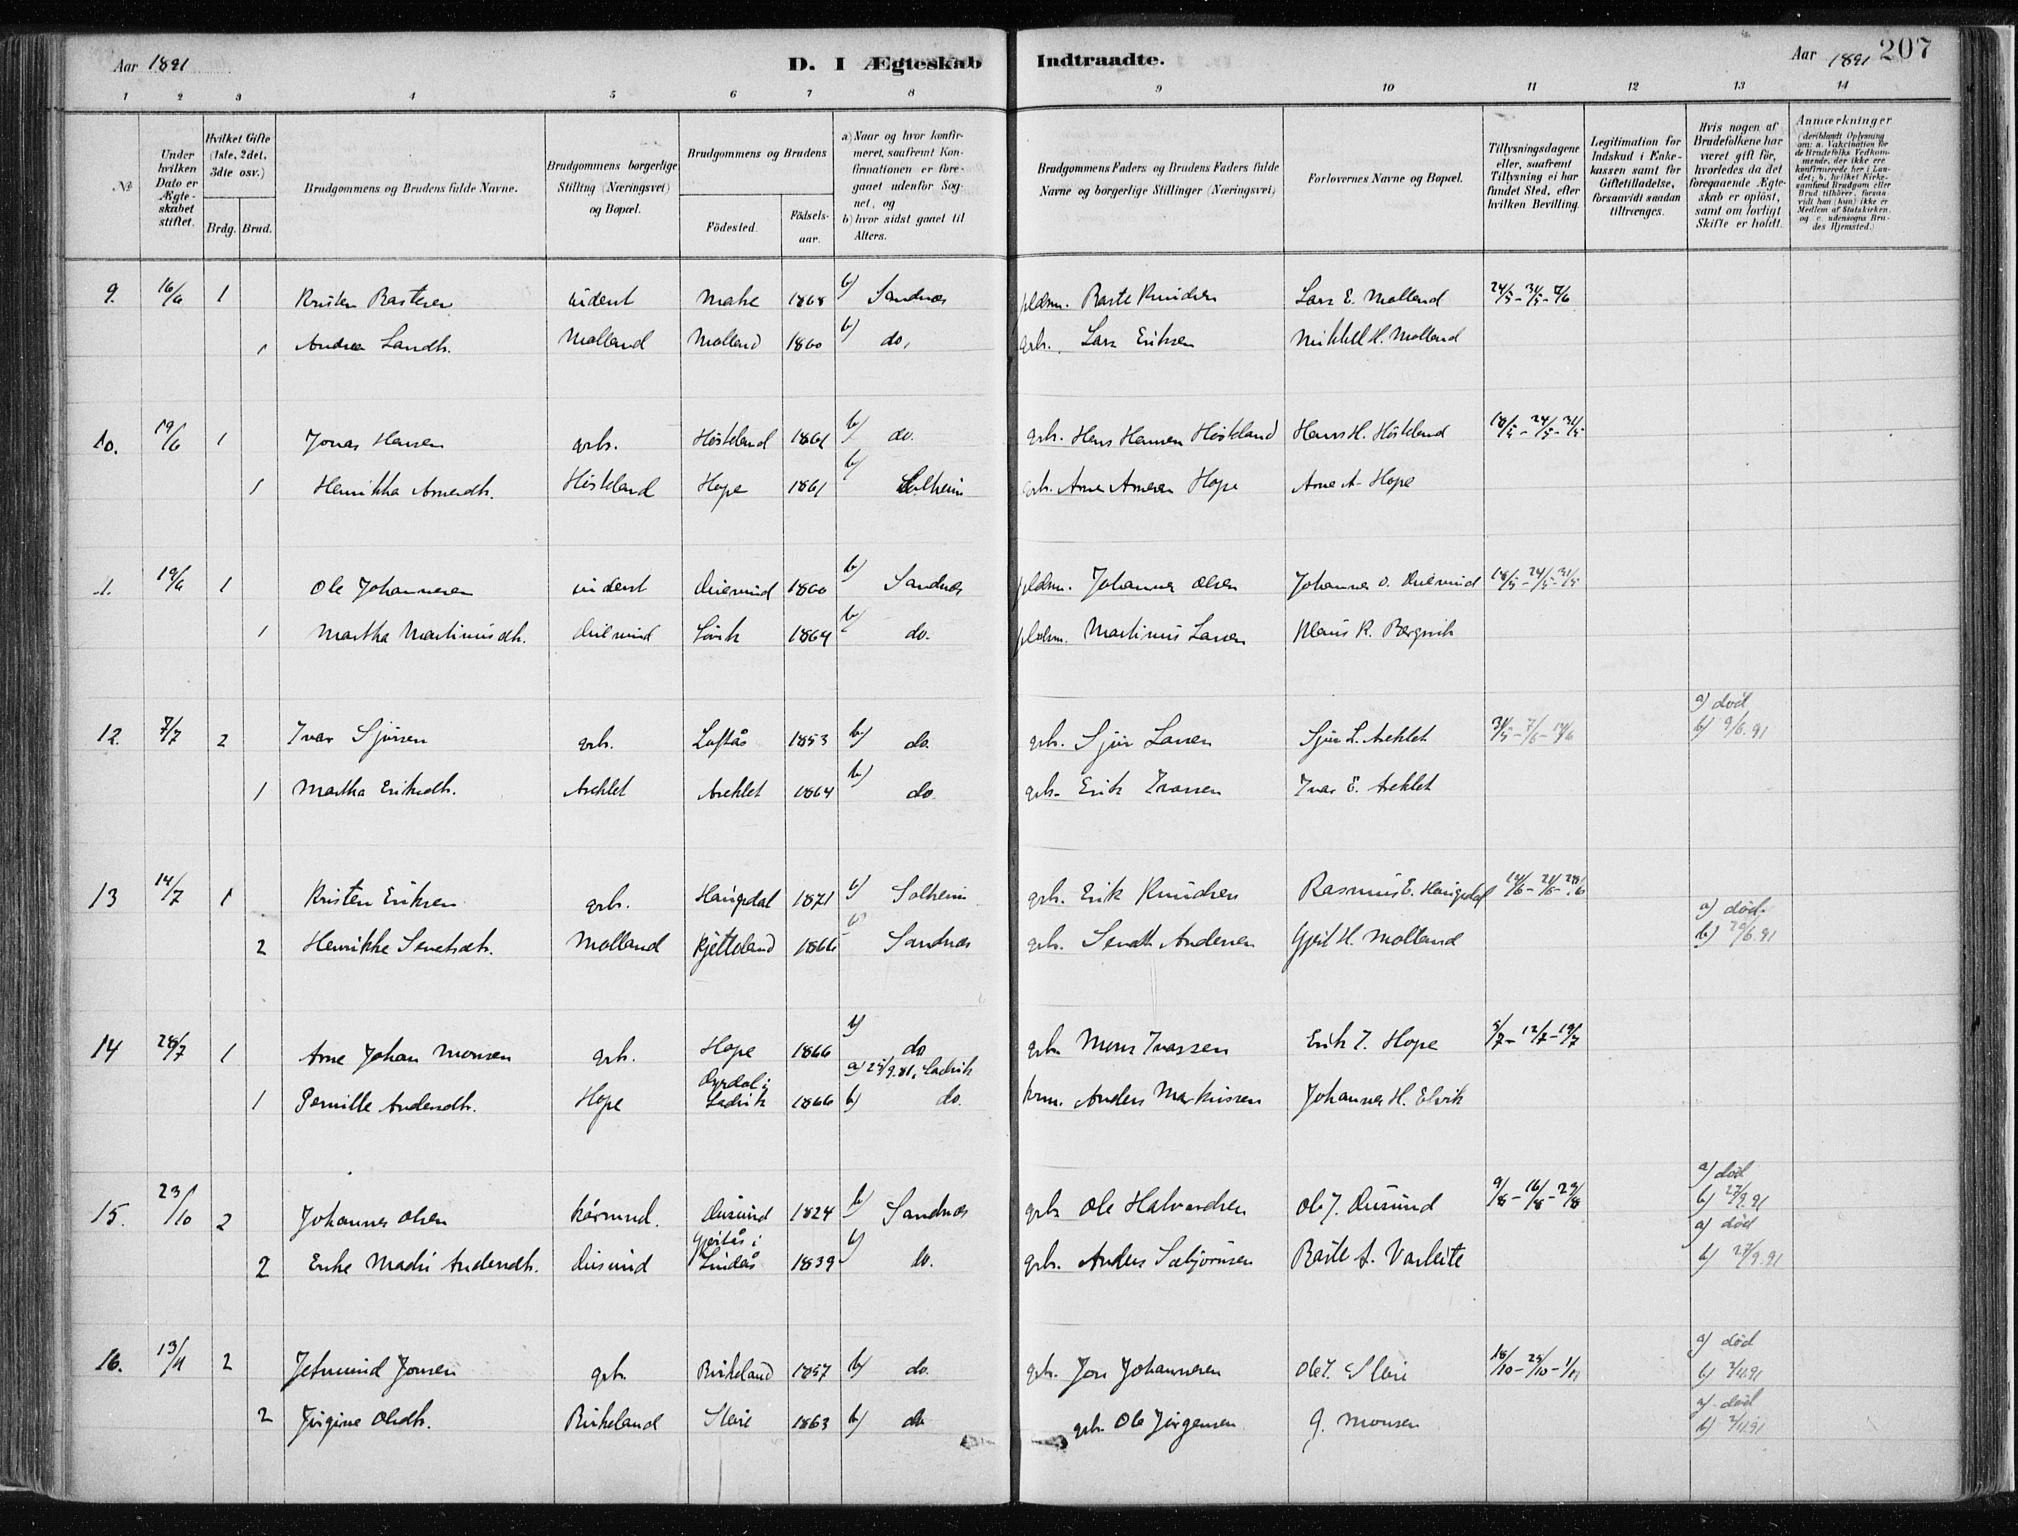 Aar 1891
D. I Ægteskab Indtraadte.
Aar 1891 207
1 2 3 4 5 6 7 8 9 10 11 12 13 14
№
Under hvilken Dato er Ægteskabet stiftet.
Hvilket Gifte (1ste, 2det, 3die osv.)
Brdg. Brud.
Brudgommens og Brudens fulde Navne.
Brudgommens borgerlige Stilling (Næringsvei) og Bopæl.
Brudgommens og Brudens
Födested.
Födselsaar.
a) Naar og hvor konfirmeret, saafremt Konfirmationen er foregaaet udenfor Sognet, og
b) hvor sidst gaaet til Alters.
Brudgommens Faders og Brudens Faders fulde Navne og borgerlige Stillinger (Næringsvei)
Forlovernes Navne og Bopæl.
Tillysningsdagene eller, saafremt Tillysning ei har fundet Sted, efter hvilken Bevilling.
Legitimation for Indskud i Enkekassen samt for Giftetilladelse, forsaavidt saadan tiltrænges.
Hvis nogen af Brudefolkene har været gift för, hvorledes da det foregaaende Ægteskab er oplöst, samt om lovligt Skifte er holdt.
Anmærkninger (deriblandt Oplysning om: a. Vakcination for de Brudefolks Vedkommende, der ikke ere konfirmerede her i Landet; b. hvilket Kirkesamfund Brudgom eller Brud tilhörer, forsaavidt han (hun) ikke er Medlem af Statskirken. og c. udensogns Brudes Hjemsted.)
9. 16/6 1 Kristen Rastesen inderst Matre 1868 b) Sandnæs pldsm. Raste Knudsen Lars E. Molland 24/5-31/5-7/6
1 Andrea Larsdtr. Molland Molland 1860 b) do. grb. Lars Eriksen Mikkel H. Molland
10. 19/6 1 Jonas Hansen grb. Höskeland 1861 b) do. grb. Hans Hansen Höskeland Hans H. Höskeland 18/5-24/5-31/5
1 Henrikka Arnesdtr. Höskeland Hope 1861 b) Solheim grb. Arne Arnesen Hope Arne A. Hope
19/6 1 Ole Johannesen inderst 1860 b) Sandnæs pldsm. Johannes Olsen Johannes O. 18/5-24/5-31/5
1 Martha Martinusdtr. 1864 b) do. pldsm. Martinus Larsen Klaus R. Bergsvik
12. 7/7 2 Ivar Sjursen grb. Loftås 1853 b) do. grb. Sjur Larsen Sjur L. 31/5-7/6-14/6 a) död b) 9/6.91
1 Martha Eriksdtr. 1864 b) do. grb. Erik Ivarsen Ivar E.
13 14/7 1 Kristen Eriksen grb. Haugsdal 1871 b) Solheim grb. Erik Knudsen Rasmus E. Haugsdal 14/6-21/6-28/6
2 Henrikke Senetsdtr. Molland Kjetteland 1866 b) Sandnæs grb. Andersen H. Molland a) död. b) 29/6.91
14 28/7 1 Arne Johan Monsen grb. Hope 1866 b) do grb. Mons Ivarsen Erik I. Hope 5/7-12/7-19/7
1 Pernille Andersdtr. Hope Oyrdal i Ladvik 1866 a) 25/9.81, Ladvik b) do. Anders Markussen Johannes H. Elvik
15. 23/10 2 Johannes Olsen kårmnd. Duesund 1824 b) Sandnæs grb. Ole Halvardsen Ole J. Duesund 9/8-16/8-23/8 a) död b) 27/9.91
2 Enke Madri Andersdtr. Duesund Gjeitås i Lindås 1839 b) do. grb. Anders Sæbjørnsen Raste A. Varleite a) död b) 27/9.91
16. 13/11 2 Jetmund Jonsen grb. Birkeland 1857 b) do. grb. Jon Johannesen Ole J. Steire 18/10-25/10-1/11 a) död b) 2/11.91
2 Jørgine Olsdtr. Birkeland Steire 1863 b) do grb. Ole Jørgensen J. Monsen a) död b) 2/11.91